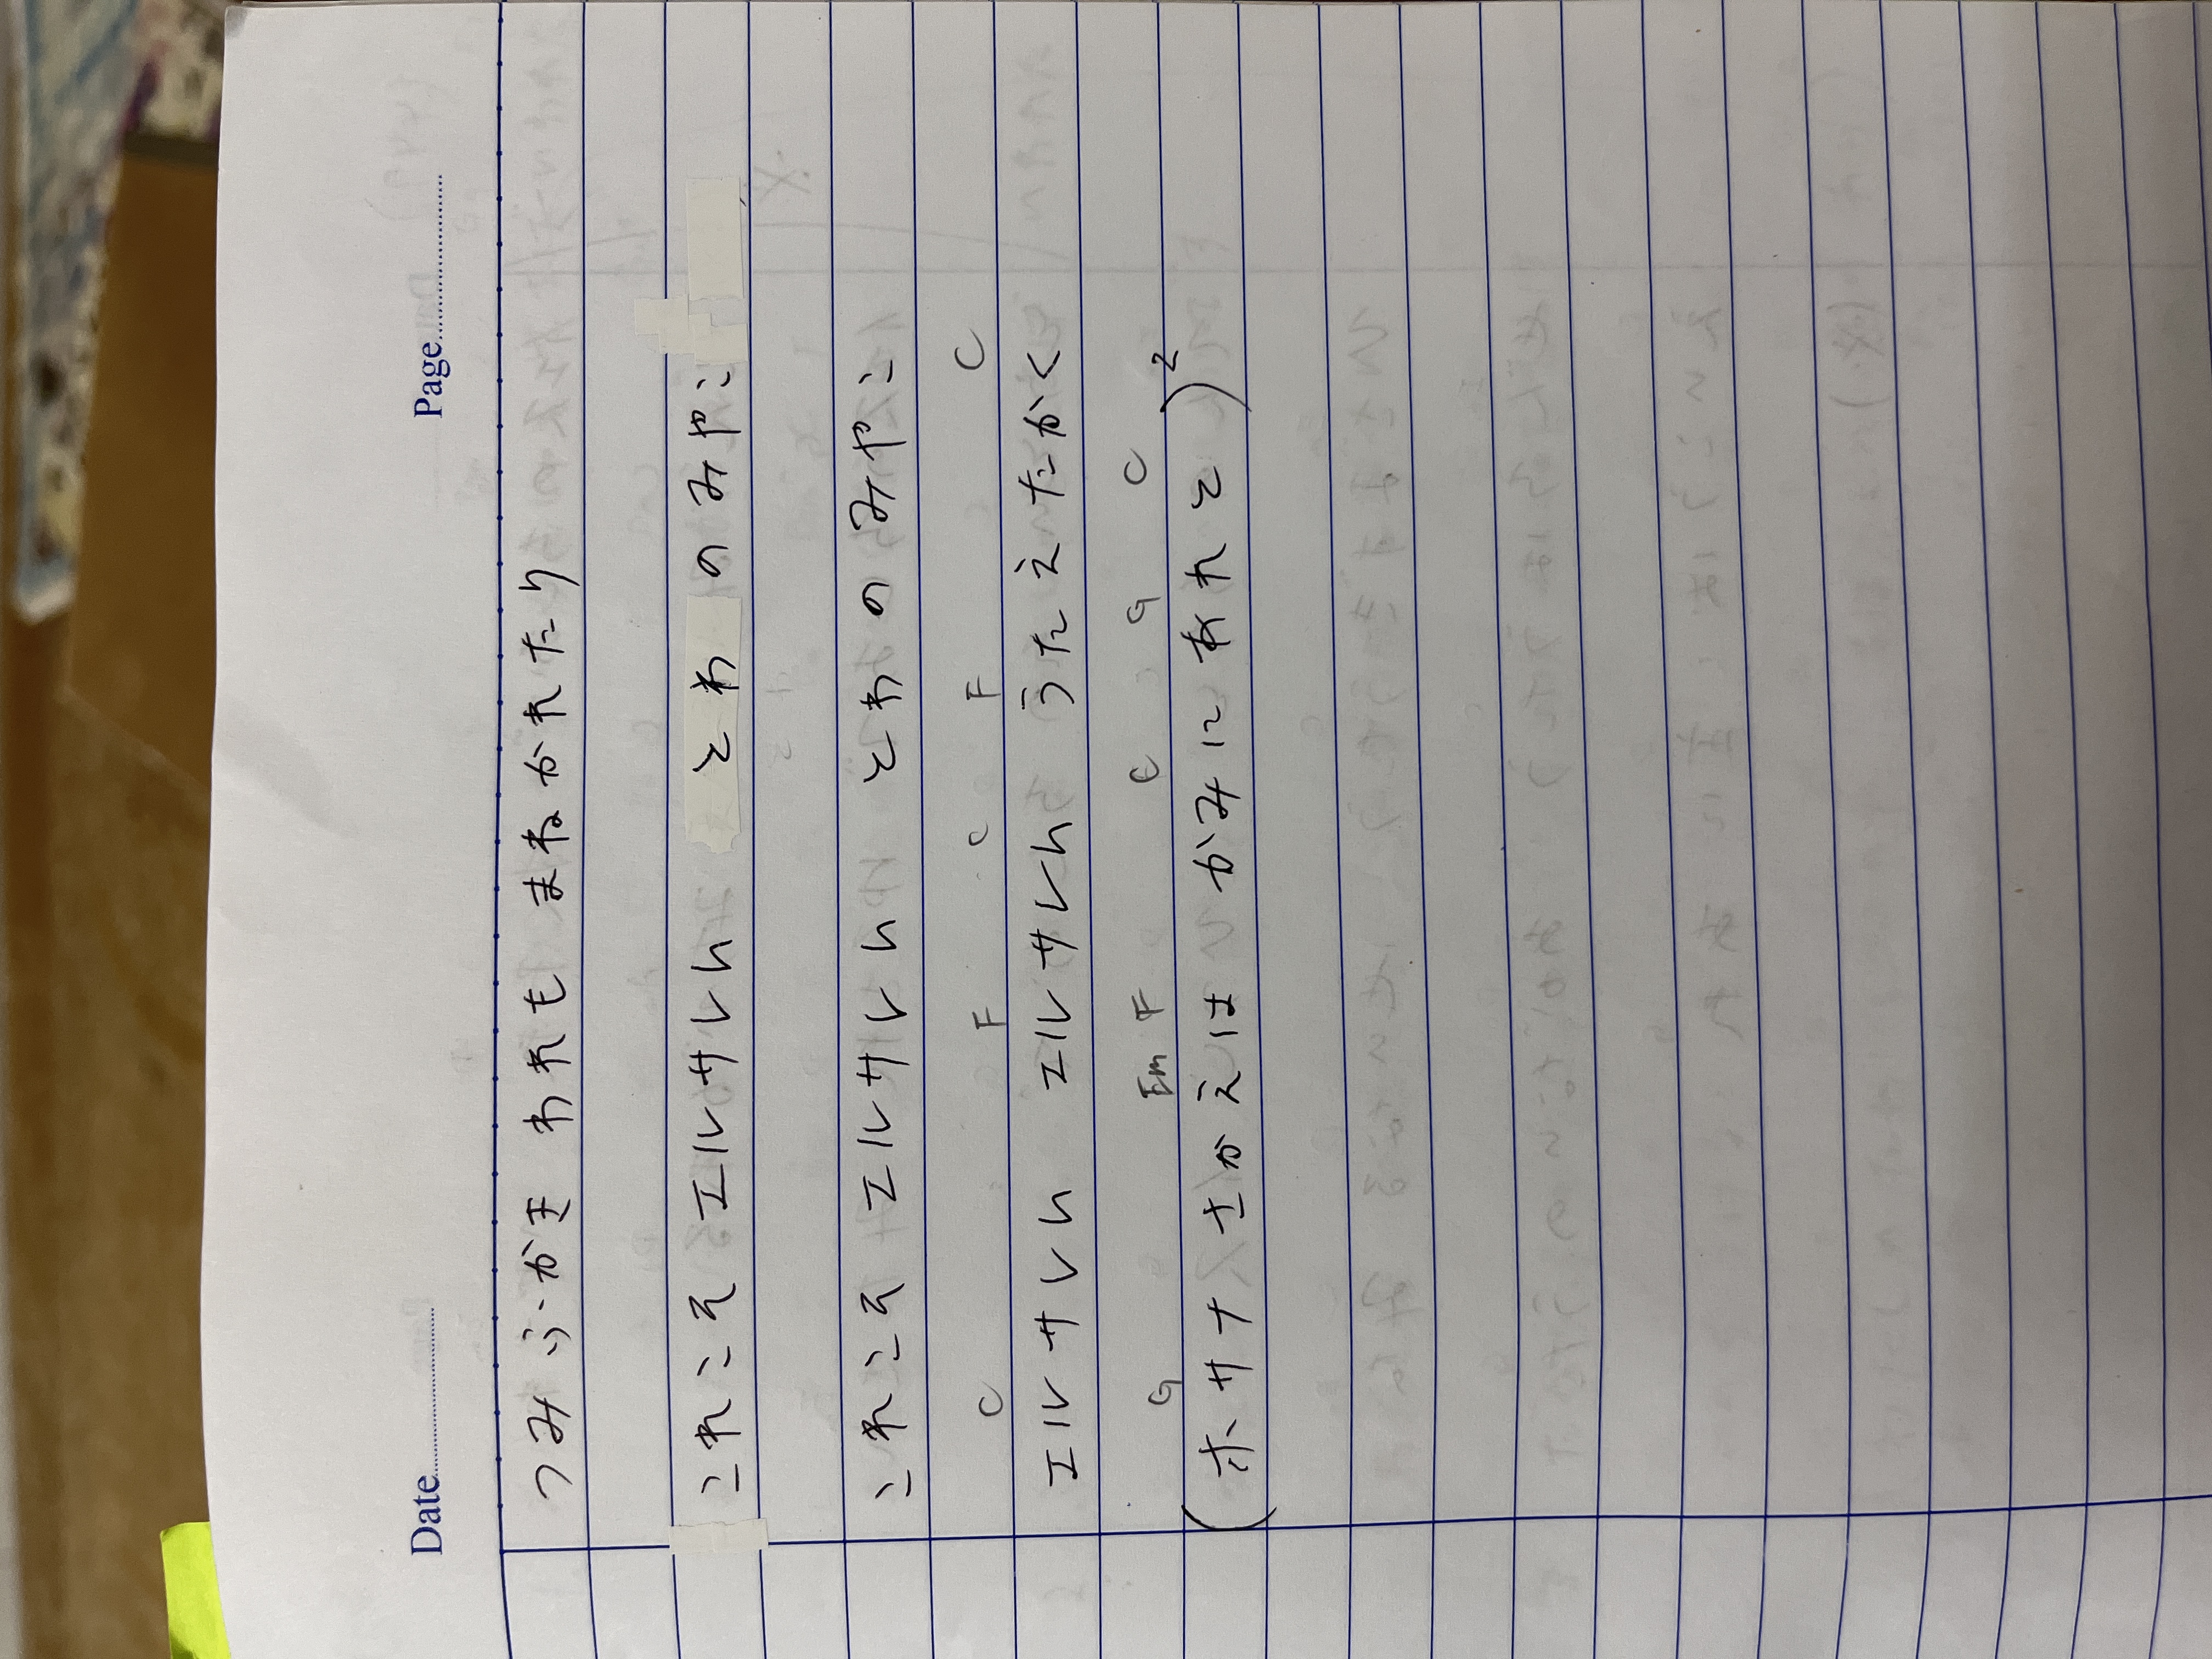 Date Page
つみ ぶかき われも まねかれたり
これこそ エルサレム とわ のみやこ
これこそ エルサレム とわのみやこ
C F C F C
エルサレム エルサレム うたえたかく
G Em F C G C
(ホサナ さかえは かみに あれと)2